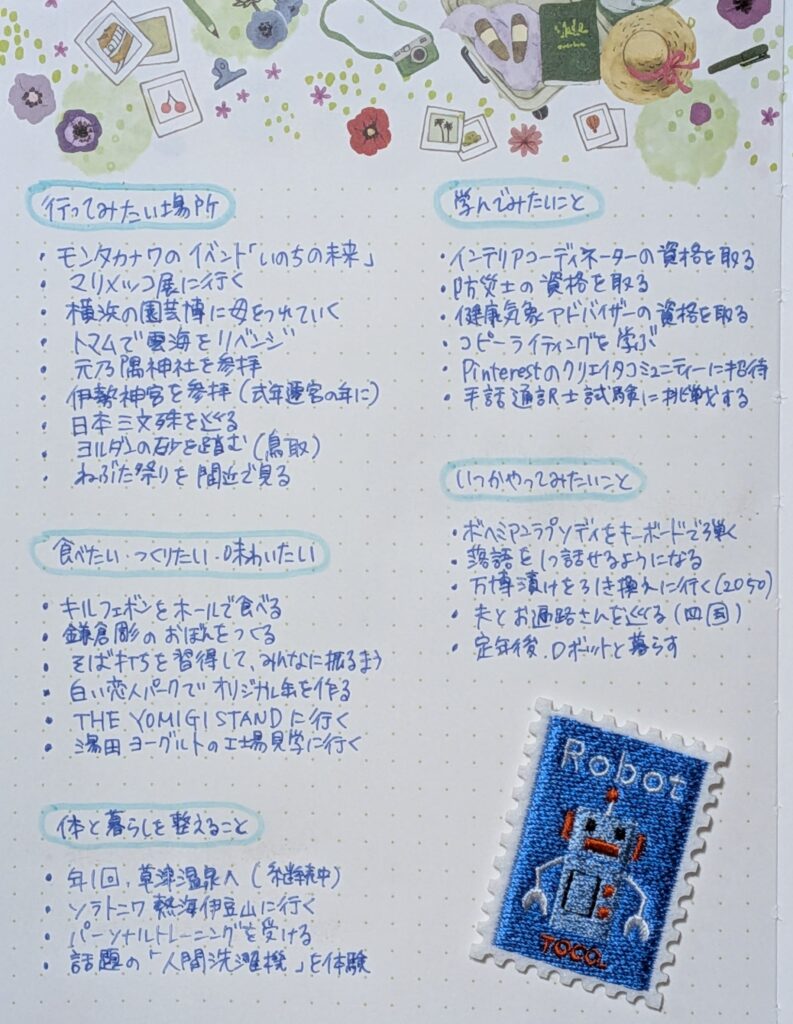 行ってみたい場所
・モンタカナワのイベント「いのちの未来」
・マリメッコ展に行く
・横浜の園芸博に母をつれていく
・トマムで雲海をリベンジ
・元乃隅神社を参拝
・伊勢神宮を参拝(式年遷宮の年に)
・日本三文殊を巡る
・ヨルダンの砂を踏む(鳥取)
・ねぶた祭りを間近で見る
食べたい・つくりたい・味わいたい
・キルフェボンをホールで食べる
・鎌倉彫のおぼんをつくる
・そば打ちを習得して、みんなに振るまう
・白い恋人パークでオリジナル缶を作る
・THE YOMIGI STANDに行く
・湯田ヨーグルトの工場見学に行く
体と暮らしを整えること
・年1回、草津温泉へ(継続中)
・ソラトニワ熱海伊豆山に行く
・パーソナルトレーニングを受ける
・話題の「人間洗濯機」を体験
学んでみたいこと
・インテリアコーディネーターの資格を取る
・防災士の資格を取る
・健康気象アドバイザーの資格を取る
・コピーライティングを学ぶ
・Pinterestのクリエイタコミュニティーに招待
・手話通訳士試験に挑戦する
いつかやってみたいこと
・ボヘミアンラプソディをキーボードで弾く
・落語を1つ話せるようになる
・万博漬けを引き換えに行く(2050)
・夫とお遍路さんを巡る(四国)
・定年後、ロボットと暮らす
Robot
TOCOL